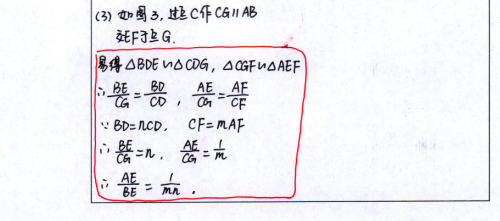 (3) 如图3, 过点C作CG∥AB
交EF于点G.
易得 △BDE∽△CDG, △CGF∽△AEF
∴ BE/CG = BD/CD , AE/CG = AF/CF
∵ BD=nCD, CF=mAF
∴ BE/CG = n, AE/CG = 1/m
∴ AE/BE = 1/mn .